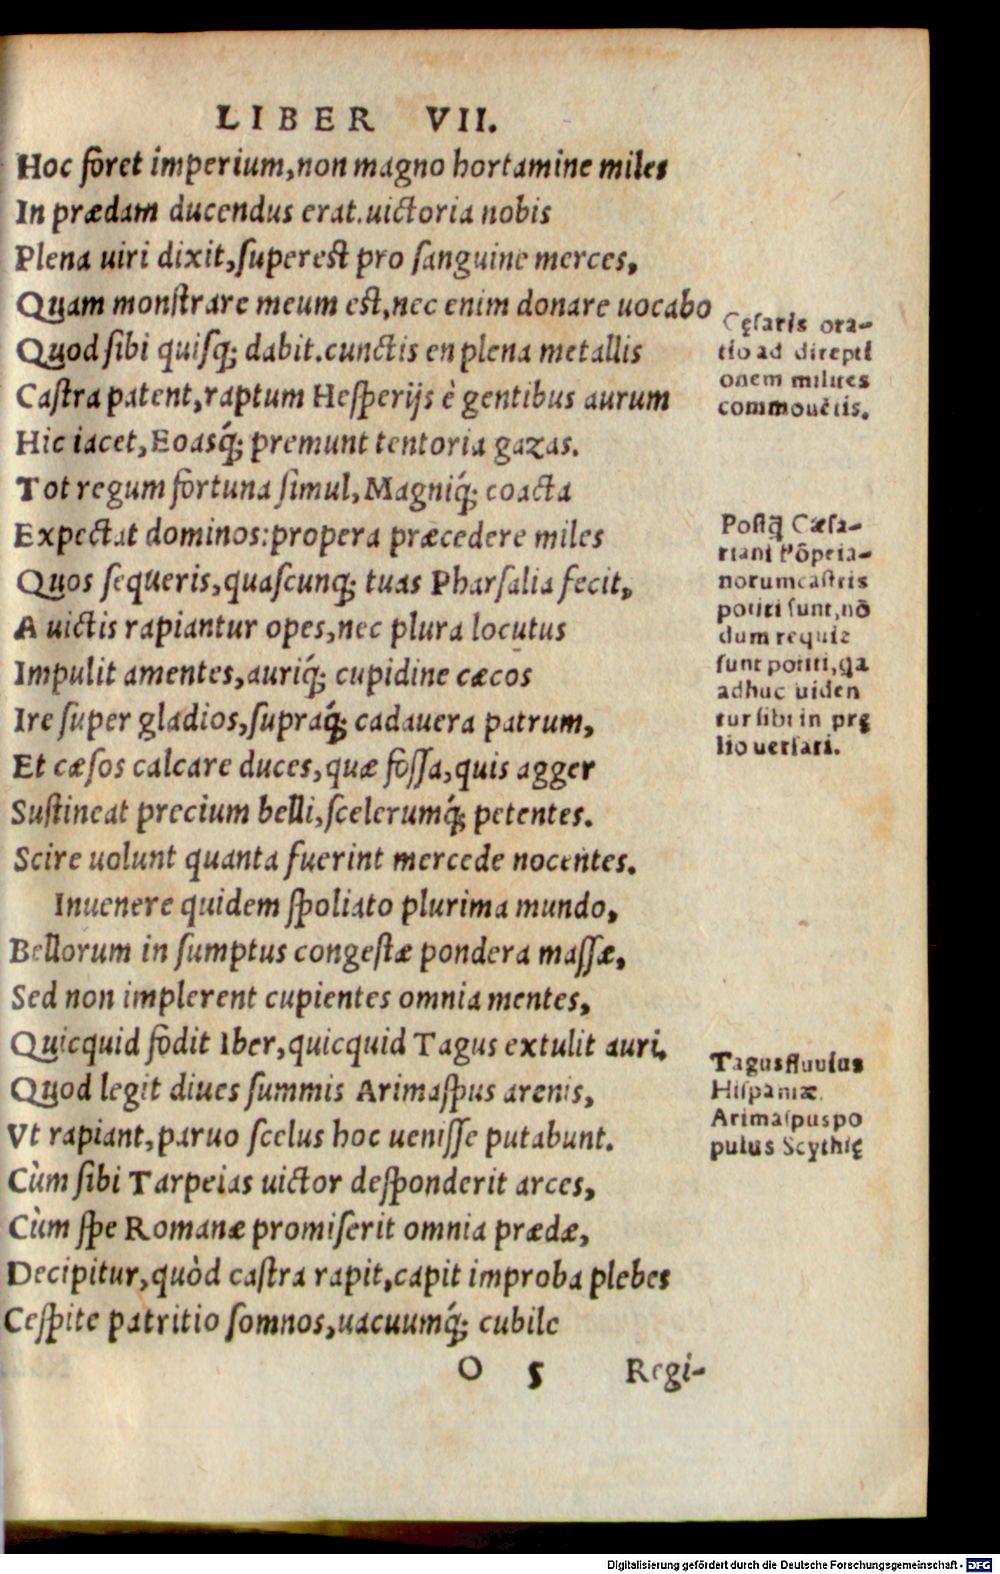 LIBER VII.
Hoc foret imperium,non magno hortamine miles
In prædam ducendus erat.uictoria nobis
Plena uiri dixit,superest pro sanguine merces,
Quam monstrare meum est,nec enim donare uocabo
Quod sibi quisq; dabit.cunctis en plena metallis
Castra patent,raptum Hesperijs è gentibus aurum
Hic iacet,Eoasq́; premunt tentoria gazas.
Tot regum fortuna simul,Magniq́; coacta
Expectat dominos:propera præcedere miles
Quos sequeris,quascunq; tuas Pharsalia fecit,
A uictis rapiantur opes,nec plura locutus
Impulit amentes,auriq́; cupidine cæcos
Ire super gladios,supraq́; cadauera patrum,
Et cæsos calcare duces,quæ fossa,quis agger
Sustineat precium belli,scelerumq́; petentes.
Scire uolunt quanta fuerint mercede nocentes.
Inuenere quidem spoliato plurima mundo,
Bellorum in sumptus congestæ pondera massæ,
Sed non implerent cupientes omnia mentes,
Quicquid fodit Iber,quicquid Tagus extulit auri.
Quod legit diues summis Arimaspus arenis,
Vt rapiant,paruo scelus hoc uenisse putabunt.
Cùm sibi Tarpeias uictor desponderit arces,
Cùm spe Romanæ promiserit omnia prædæ,
Decipitur,quòd castra rapit,capit improba plebes
Cespite patritio somnos,uacuumq́; cubile
O 5 Regi-
Cęsaris ora-
tio ad direpti
onem milites
commouētis.
Postq̃ Cæsa-
riani Põpeia-
norum castris
potiti sunt,nõ
dum requie
sunt potiti,qa
adhuc uiden
tur sibi in prę
lio uersari.
Tagus fluuius
Hispaniæ.
Arimaspus po
pulus Scythię
Digitalisierung gefördert durch die Deutsche Forschungsgemeinschaft - DFG